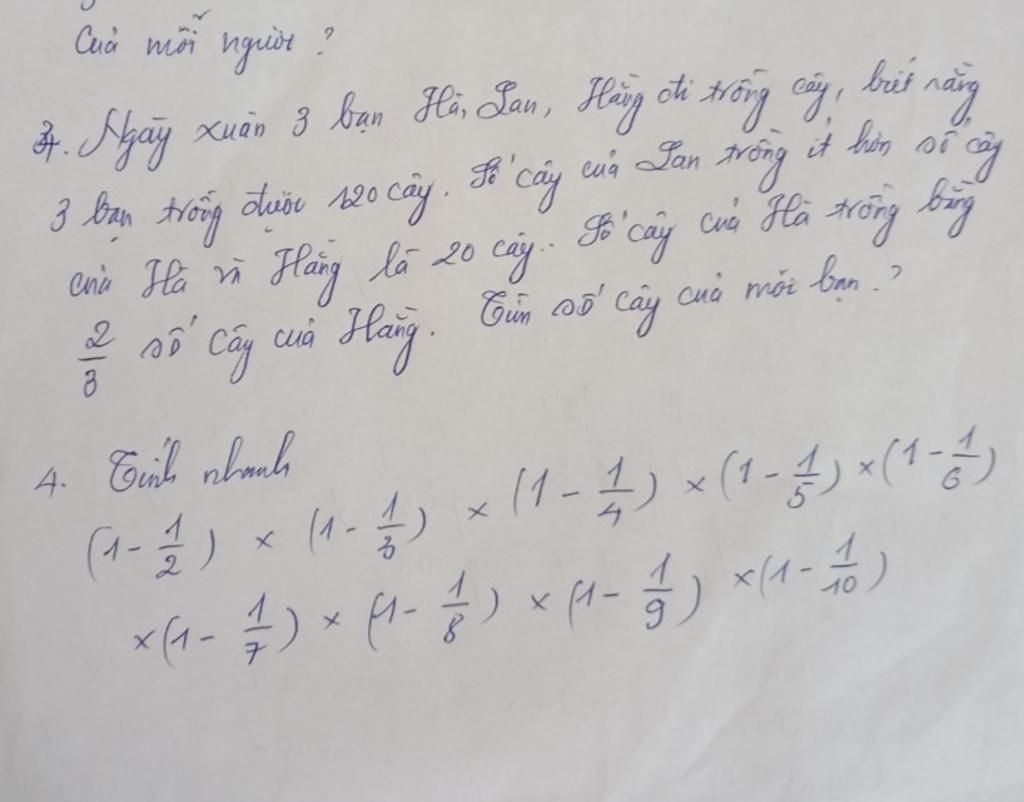 Của mỗi người ?
3. Ngày xuân 3 bạn Hà, Lan, Hằng đi trồng cây, biết rằng
3 bạn trồng được 120 cây. Số cây của Lan trồng ít hơn số cây
của Hà và Hằng là 20 cây. Số cây của Hà trồng bằng
2/3 số cây của Hằng. Tìm số cây của mỗi bạn ?
4. Tính nhanh
(1 - 1/2) × (1 - 1/3) × (1 - 1/4) × (1 - 1/5) × (1 - 1/6)
× (1 - 1/7) × (1 - 1/8) × (1 - 1/9) × (1 - 1/10)